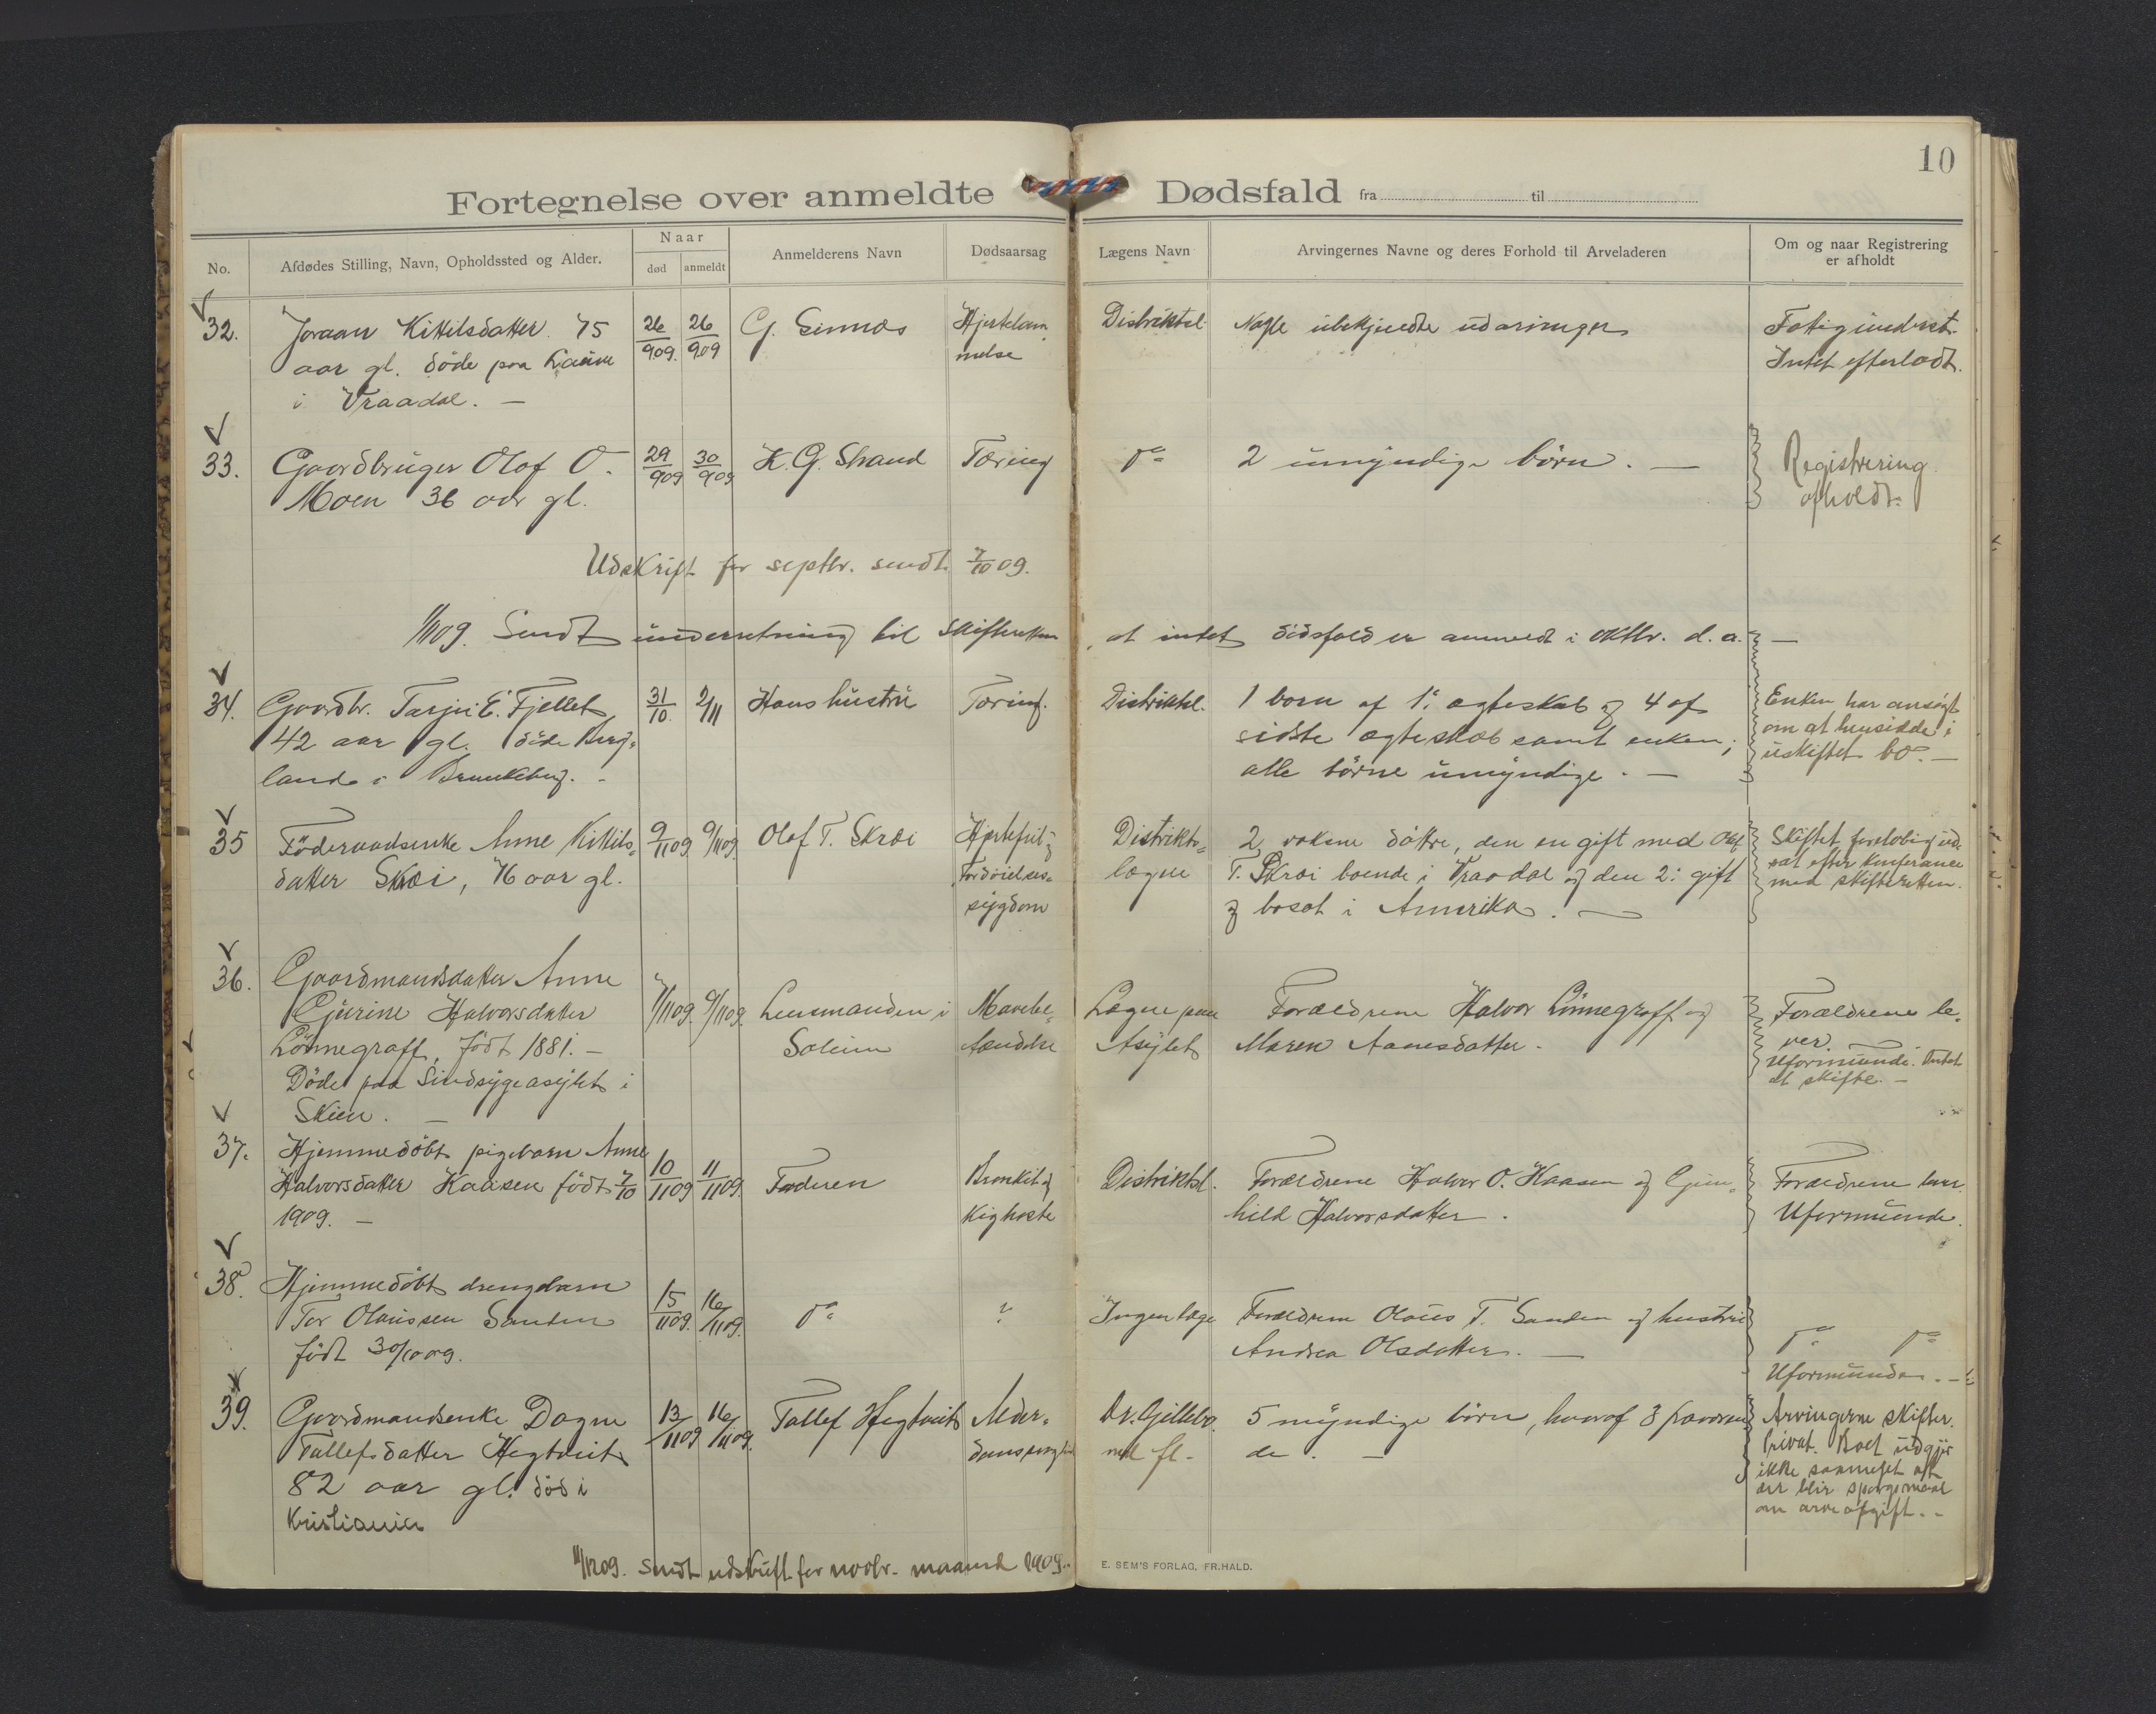 10
Fortegnelse over anmeldte Dødsfald fra til
No.
Afdødes Stilling, Navn, Opholdssted og Alder.
Naar
død anmeldt
Anmelderens Navn
Dødsaarsag
Lægens Navn
Arvingernes Navne og deres Forhold til Arveladeren
Om og naar Registrering
er afholdt
32.
Joraan Kittilsdatter 75
aar gl. døde paa
i Vraadal. —
26/909. 26/909
G.
Hjertelam
melse
Distriktsl.
Nogle ubekjendte udarvinger
Fatigunderst.
Intet efterladt.
33.
Gaardbruger Olaf O.
Moen 36 aar gl.
29/909 30/909
K. G. Strand
Tæring
Do
2 umyndige børn. —
Registrering
afholdt.
Udskrift for septbr. sendt 7/10 09.
1/1109. Sendt underretning til skifteretten, at intet dødsfald er anmeldt i oktbr. d. a. —
34.
Gaardbr. Tarjei E. Fjellet
42 aar gl. døde Berg=
land i Brunkeberg. -
31/10. 2/11
Hans hustru
Tæring.
Distriktsl.
1 barn af 1. ægteskab og 4 af
sidste ægteskab samt enken;
alle børne umyndige. —
Enken har ansøgt
om at hensidde i
uskiftet bo. —
35
Føderaadsenke Anne Kittils=
datter Skræi, 76 aar gl.
9/1109. 9/1109.
Olaf T. Skræi
Hjertefeil og
Fordøielses=
sygdom
Distrikts=
læge
2 voksne døttre, den en gift med Olaf
T. Skræi boende i Vraadal og den 2: gift
og bosat i Amerika. —
Skiftet foreløbig ud
sat efter konferance
med skifteretten.
36.
Gaardmandsdatter Anne
Gurine Halvorsdatter
Lønnegraff, født 1881. —
Døde paa Sindsygeasylet i
Skien. —
7/1109. 9/1109.
Lensmanden i
Solum
Mavebe=
tændelse
Læge paa
Asylet
Forældrene Halvor Lønnegraff og
Maren Aanesdatter.
Forældrene le=
ver. —
Uformuende. Intet
at skifte. —
37.
Hjemmedøbt pigebarn Anne
Halvorsdatter Kaasen født 7/10
1909. —
10/1109 11/1109
Faderen
Bronkit og
Kighoste
Distriktsl.
Forældrene Halvor O. Kaasen og Gun=
hild Halvorsdatter.
Forældrene lever.
Uformuende.
38.
Hjemmedøbt drengebarn
Tor Olaussen Sanden
født 30/1009.
15/1109. 16/1109.
Do
?
Ingen læge
Forældrene Olaus T. Sanden og hustru
Andrea Olsdatter. —
Do Do
Uformuende. —
39.
Gaardmandsenke Dagne
Tallefsdatter Hegtveit
82 aar gl. død i
Kristiania
13/1109 16/1109.
Tallef Hegtveit
Alder=
domssvaghed
Dr. Gillebo
med fl.
5 myndige børn, hvoraf 3 fraværen
de. —
Arvingerne skifter
Privat. Boet udgjør
ikke saameget at
der blir spørgsmaal
om arveafgift. -
11/1209. Sendt udskrift for novbr. maaned 1909.
E. SEM'S FORLAG, FR.HALD.